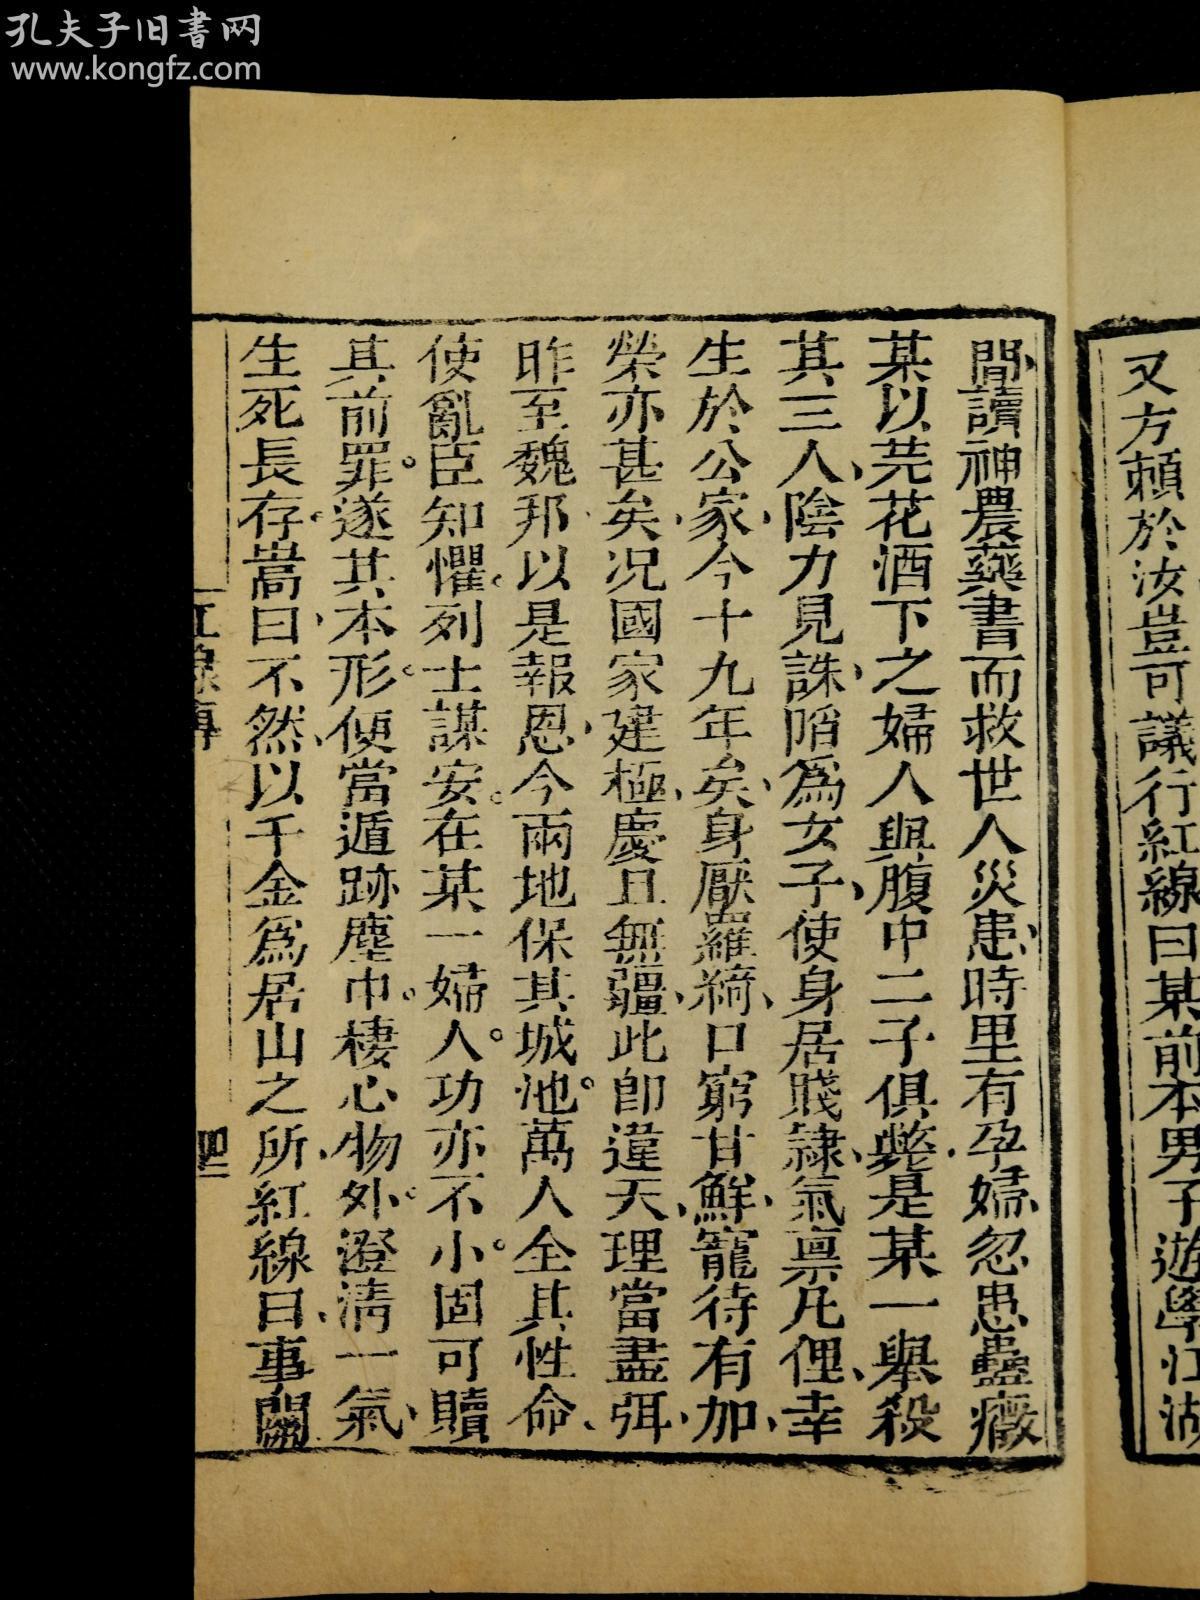 孔夫子旧書网
www.kongfz.com
又方賴於汝豈可議行紅線曰某前本男子遊學江湖
間讀神農藥書而救世人災患時里有孕婦忽患蠱癥
某以芫花酒下之婦人與腹中二子俱斃是某一舉殺
其三人陰力見誅陷爲女子使身居賤隸氣禀凡俚幸
生於公家今十九年矣身厭羅綺口窮甘鮮寵待有加
榮亦甚矣况國家建極慶且無疆此即違天理當盡弭
昨至魏邦以是報恩今兩地保其城池萬人全其性命
使亂臣知懼列士謀安在某一婦人功亦不小固可贖
其前罪遂其本形便當遁跡塵中棲心物外澄清一氣
生死長存嵩曰不然以千金爲居山之所紅線曰事關
紅線傳
四